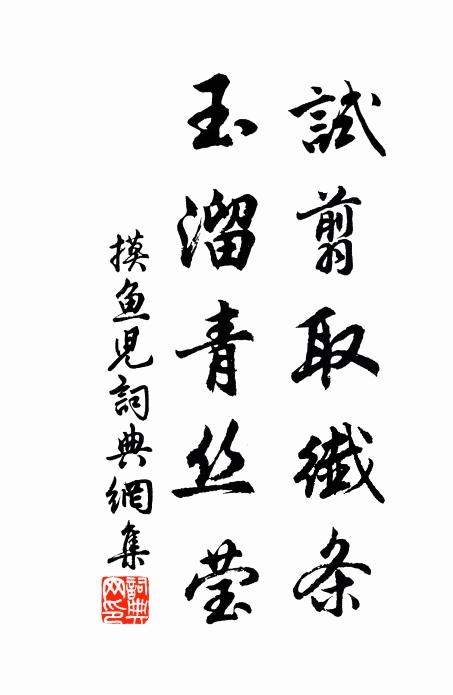 試翦取纖条
玉溜青丝莹
摸魚児詞典網集
詞典网印